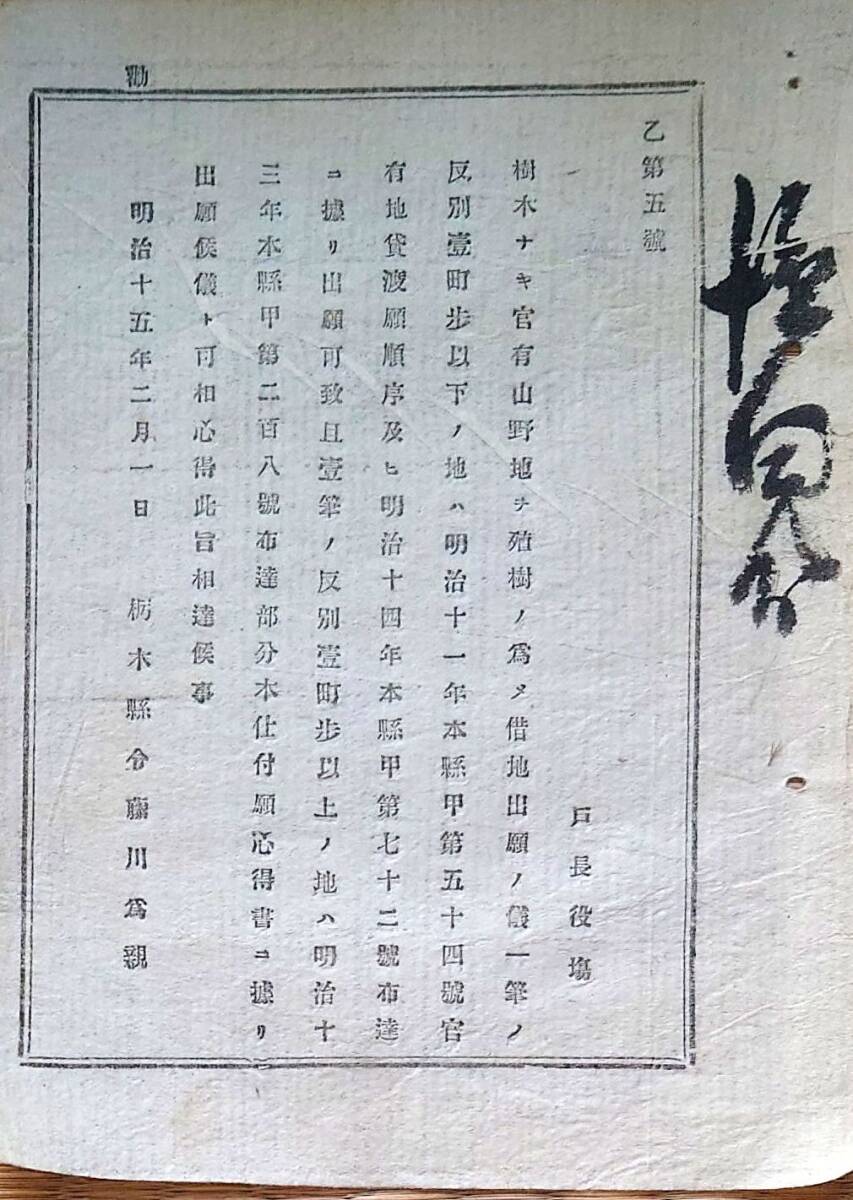 乙第五號
戸長役塲
樹木ナキ官有山野地ヲ殖樹ノ爲メ借地出願ノ儀一筆ノ
反別壹町步以下ノ地ハ明治十一年本縣甲第五十四號官
有地貸渡願順序及ヒ明治十四年本縣甲第七十二號布達
ニ據リ出願可致且壹筆ノ反別壹町步以上ノ地ハ明治十
三年本縣甲第二百八號布達部分木仕付願心得書ニ據リ
出願候儀ト可相心得此旨相達候事
明治十五年二月一日　栃木縣令藤川爲親
勸